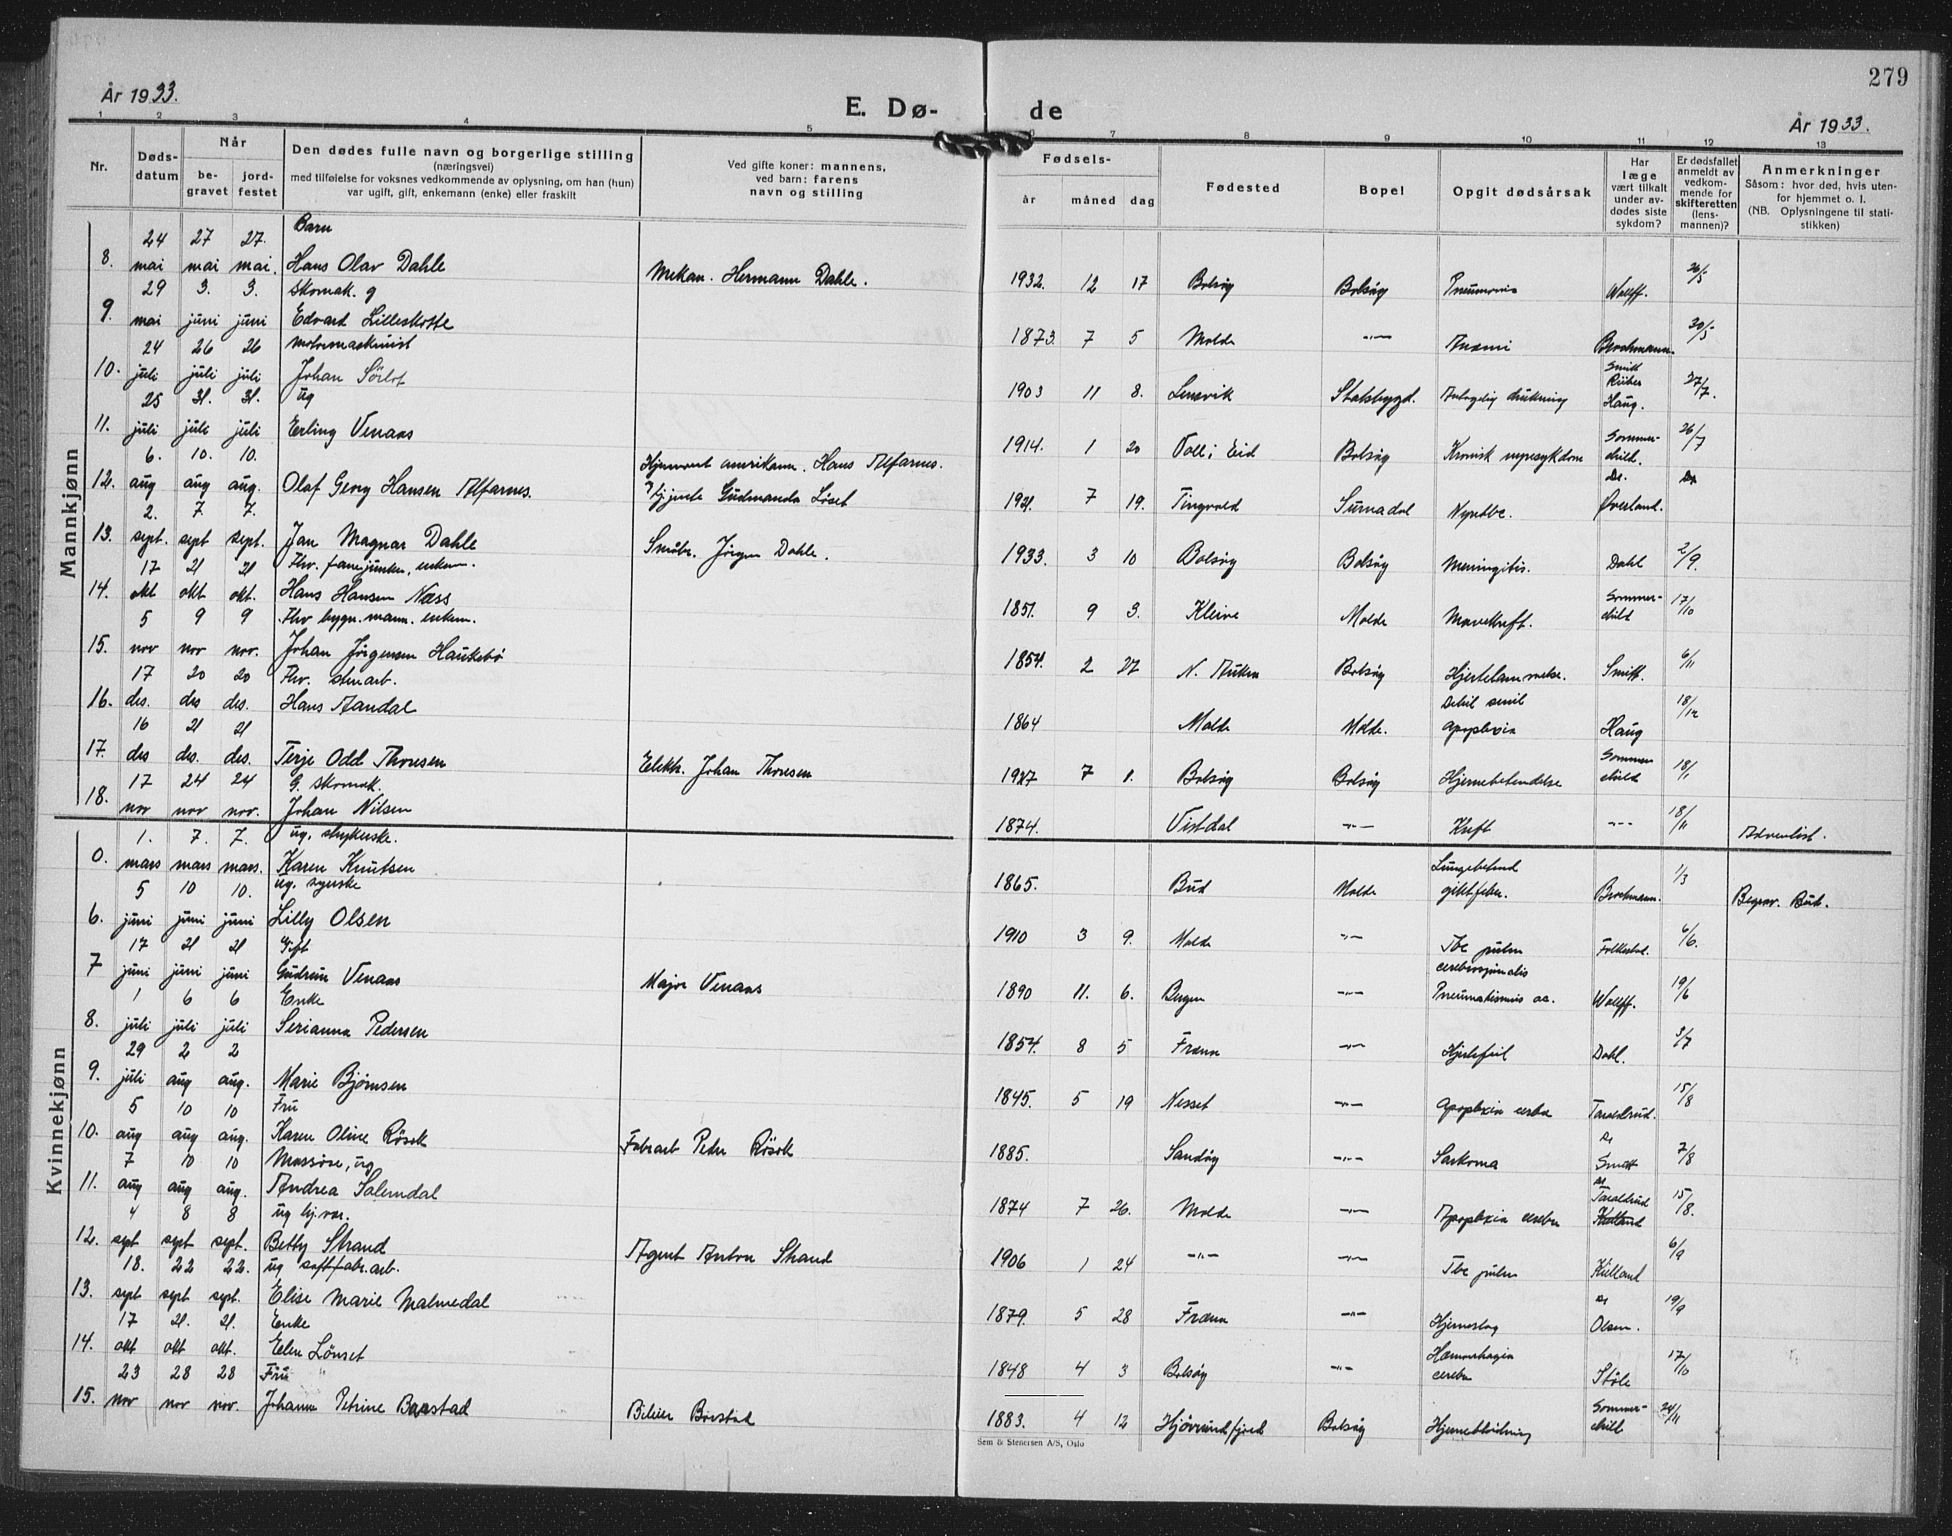 279
År 1933.
E. Dø- de
År 1933.
1 2 3 4 5 6 7 8 9 10 11 12 13
Nr.
Døds-
datum
Når
be-
gravet
jord-
festet
Den dødes fulle navn og borgerlige stilling
(næringsvei)
med tilføielse for voksnes vedkommende av oplysning, om han (hun)
var ugift, gift, enkemann (enke) eller fraskilt
Ved gifte koner: mannens,
ved barn: farens
navn og stilling
Fødsels-
år måned dag
Fødested
Bopel
Opgit dødsårsak
Har
læge
vært tilkalt
under av-
dødes siste
sykdom?
Er dødsfallet
anmeldt av
vedkom-
mende for
skifteretten
(lens-
mannen)?
Anmerkninger
Såsom: hvor død, hvis uten-
for hjemmet o. l.
(NB. Oplysningene til stati-
stikken)
Mannkjønn
24 27 27. Barn
8. mai mai mai. Hans Olav Dahle Mekan. Hermann Dahle. 1932. 12 17 Bolsøy Bolsøy Pneumonia Wolff. 26/5
29 3. 3. Skomak. g
9. mai juni juni Edvard Lilleskotte 1873. 7 5 Molde -"- Anæmi Brochmann. 30/5
24 26 26 motormaskinist
10. juli juli juli Johan 1903 11 8. Lensvik Stadsbygd. drukning Haug. 27/7.
25 31. 31. ug
11. juli juli juli Erling Venaas 1914. 1 20 Voll i Eid Bolsøy Kronisk nyresykdom Sommer-
schild. 26/7
6. 10. 10. Hjemvent amerikaner. Hans Alfarnes.
12. aug aug aug. Olaf Georg Hansen Alfarnes. Gudmunda Løset 1921. 7 19. Tingvold Surnadal Nyretbc. Dr.
Øverland. Do
2. 7. 7.
13. sept. sept sept. Jan Magnar Dahle Småbr. Jørgen Dahle. 1933. 3 10 Bolsøy Bolsøy Meningitis. Dahl 2/9.
17 21 21 Fhv. fanejunker, enkem.
14. okt okt okt. Hans Hansen Næss 1851. 9 3. Kleive Molde Mavekreft. Sommer-
schild 17/10
5 9 9 Fhv bygn. mann. enkem.
15. nov nov nov. Johan Jørgensen Haukebø 1854. 2 27 N. Aukra Bolsøy Hjertelammelse. Smitt. 6/11
17 20 20 Fhv. stenarb.
16. des. des des. Hans Aandal 1864 Molde Molde. Debil senil
Apoplexia Haug 18/12
16 21 21
17. des des. des. Terje Odd Thoresen Elektr. Johan Thoresen 1927 7 1. Bolsøy Bolsøy Hjernebetendelse Sommer
schild 18/1
17 24 24 G. skomak.
18. nov nov nov. Johan Nilsen 1874. Vistdal -"- Kreft -"- 18/11 Adventist.
Kvinnekjønn
1. 7. 7. ug. strykerske.
0. mars mars mars. Karen Knutsen 1865. Bud Molde Lungebetend
giktfeber. Brochmann. 1/3 Begrav. Bud.
5 10 10. ug. syerske
6. juni juni juni Lilly Olsen 1910 3 9. Molde -"- Tbc pulm
cerebrospinalis Folkestad. 6/6.
17 21 21 Gift
7 juni juni juni Gudrun Venaas Major Venaas 1890 11. 6. Bergen -"- Wolff. 19/6
1 6 6 Enke
8. juli juli juli Serianna Pedersen 1854. 8 5 Fræna -"- Hjertefeil Dahl. 3/7
29 2 2
9. juli aug aug. Marie Bjørnsen 1845. 5 19 Nesset -"- Apoplexia cerebri Taraldrud. 15/8
5 10 10 Fru
10. aug aug aug. Karen Oline Røsok Fabrarb Peder Røsok 1885. Sandøy -"- Sarkoma Dr
Smitt 7/8
7 10 10 Massøse, ug
11. aug aug aug. Andrea Solemdal 1874 7 26. Molde -"- Apoplexia cerebri Dr
Taraldrud 15/8.
4 8 8 ug hj.vær.
12. sept sept sept. Betty Strand Agent Anton Strand 1906 1 24 -"- -"- Tbc pulm Kielland 6/9
18. 22 22. ug saftfabr. arb.
13. sept sept sept. Elise Marie Malmedal 1879. 5 28 Fræna -"- Hjerneslag Dr
Olsen. 19/9
17 21. 21. Enke
14. okt okt okt. Elen Lønset 1848 4 3 Bolsøy -"- Hæmorrhagia
cerebri Støle 17/10
23 28 28 Fru
15. nov nov nov. Johanne Petrine Barstad Bileier Barstad 1883. 4 12 Hjørundfjord Bolsøy Hjerneblødning Sommer-
schild 24/11
Sem & Stenersen A/S, Oslo